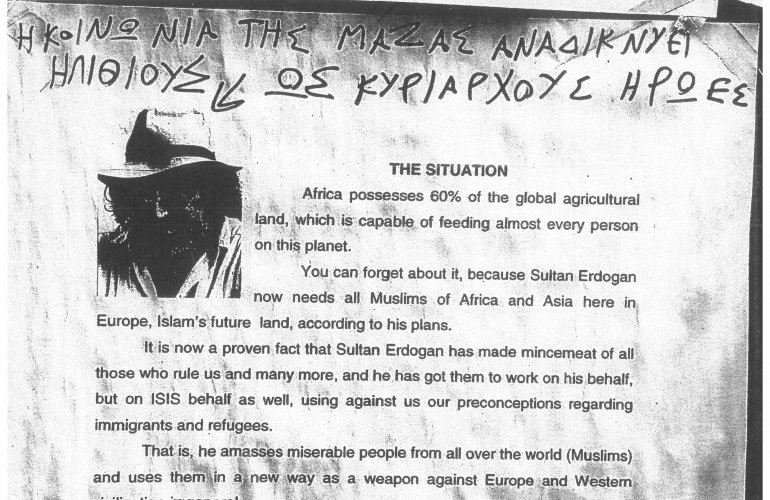 Η ΚΟΙΝΩΝΙΑ ΤΗΣ ΜΑΖΑΣ ΑΝΑΔΙΚΝΥΕΙ
ΗΛΙΘΙΟΥΣ ΩΣ ΚΥΡΙΑΡΧΟΥΣ ΗΡΩΕΣ
THE SITUATION
Africa possesses 60% of the global agricultural
land, which is capable of feeding almost every person
on this planet.
You can forget about it, because Sultan Erdogan
now needs all Muslims of Africa and Asia here in
Europe, Islam's future land, according to his plans.
It is now a proven fact that Sultan Erdogan has made mincemeat of all
those who rule us and many more, and he has got them to work on his behalf,
but on ISIS behalf as well, using against us our preconceptions regarding
immigrants and refugees.
That is, he amasses miserable people from all over the world (Muslims)
and uses them in a new way as a weapon against Europe and Western